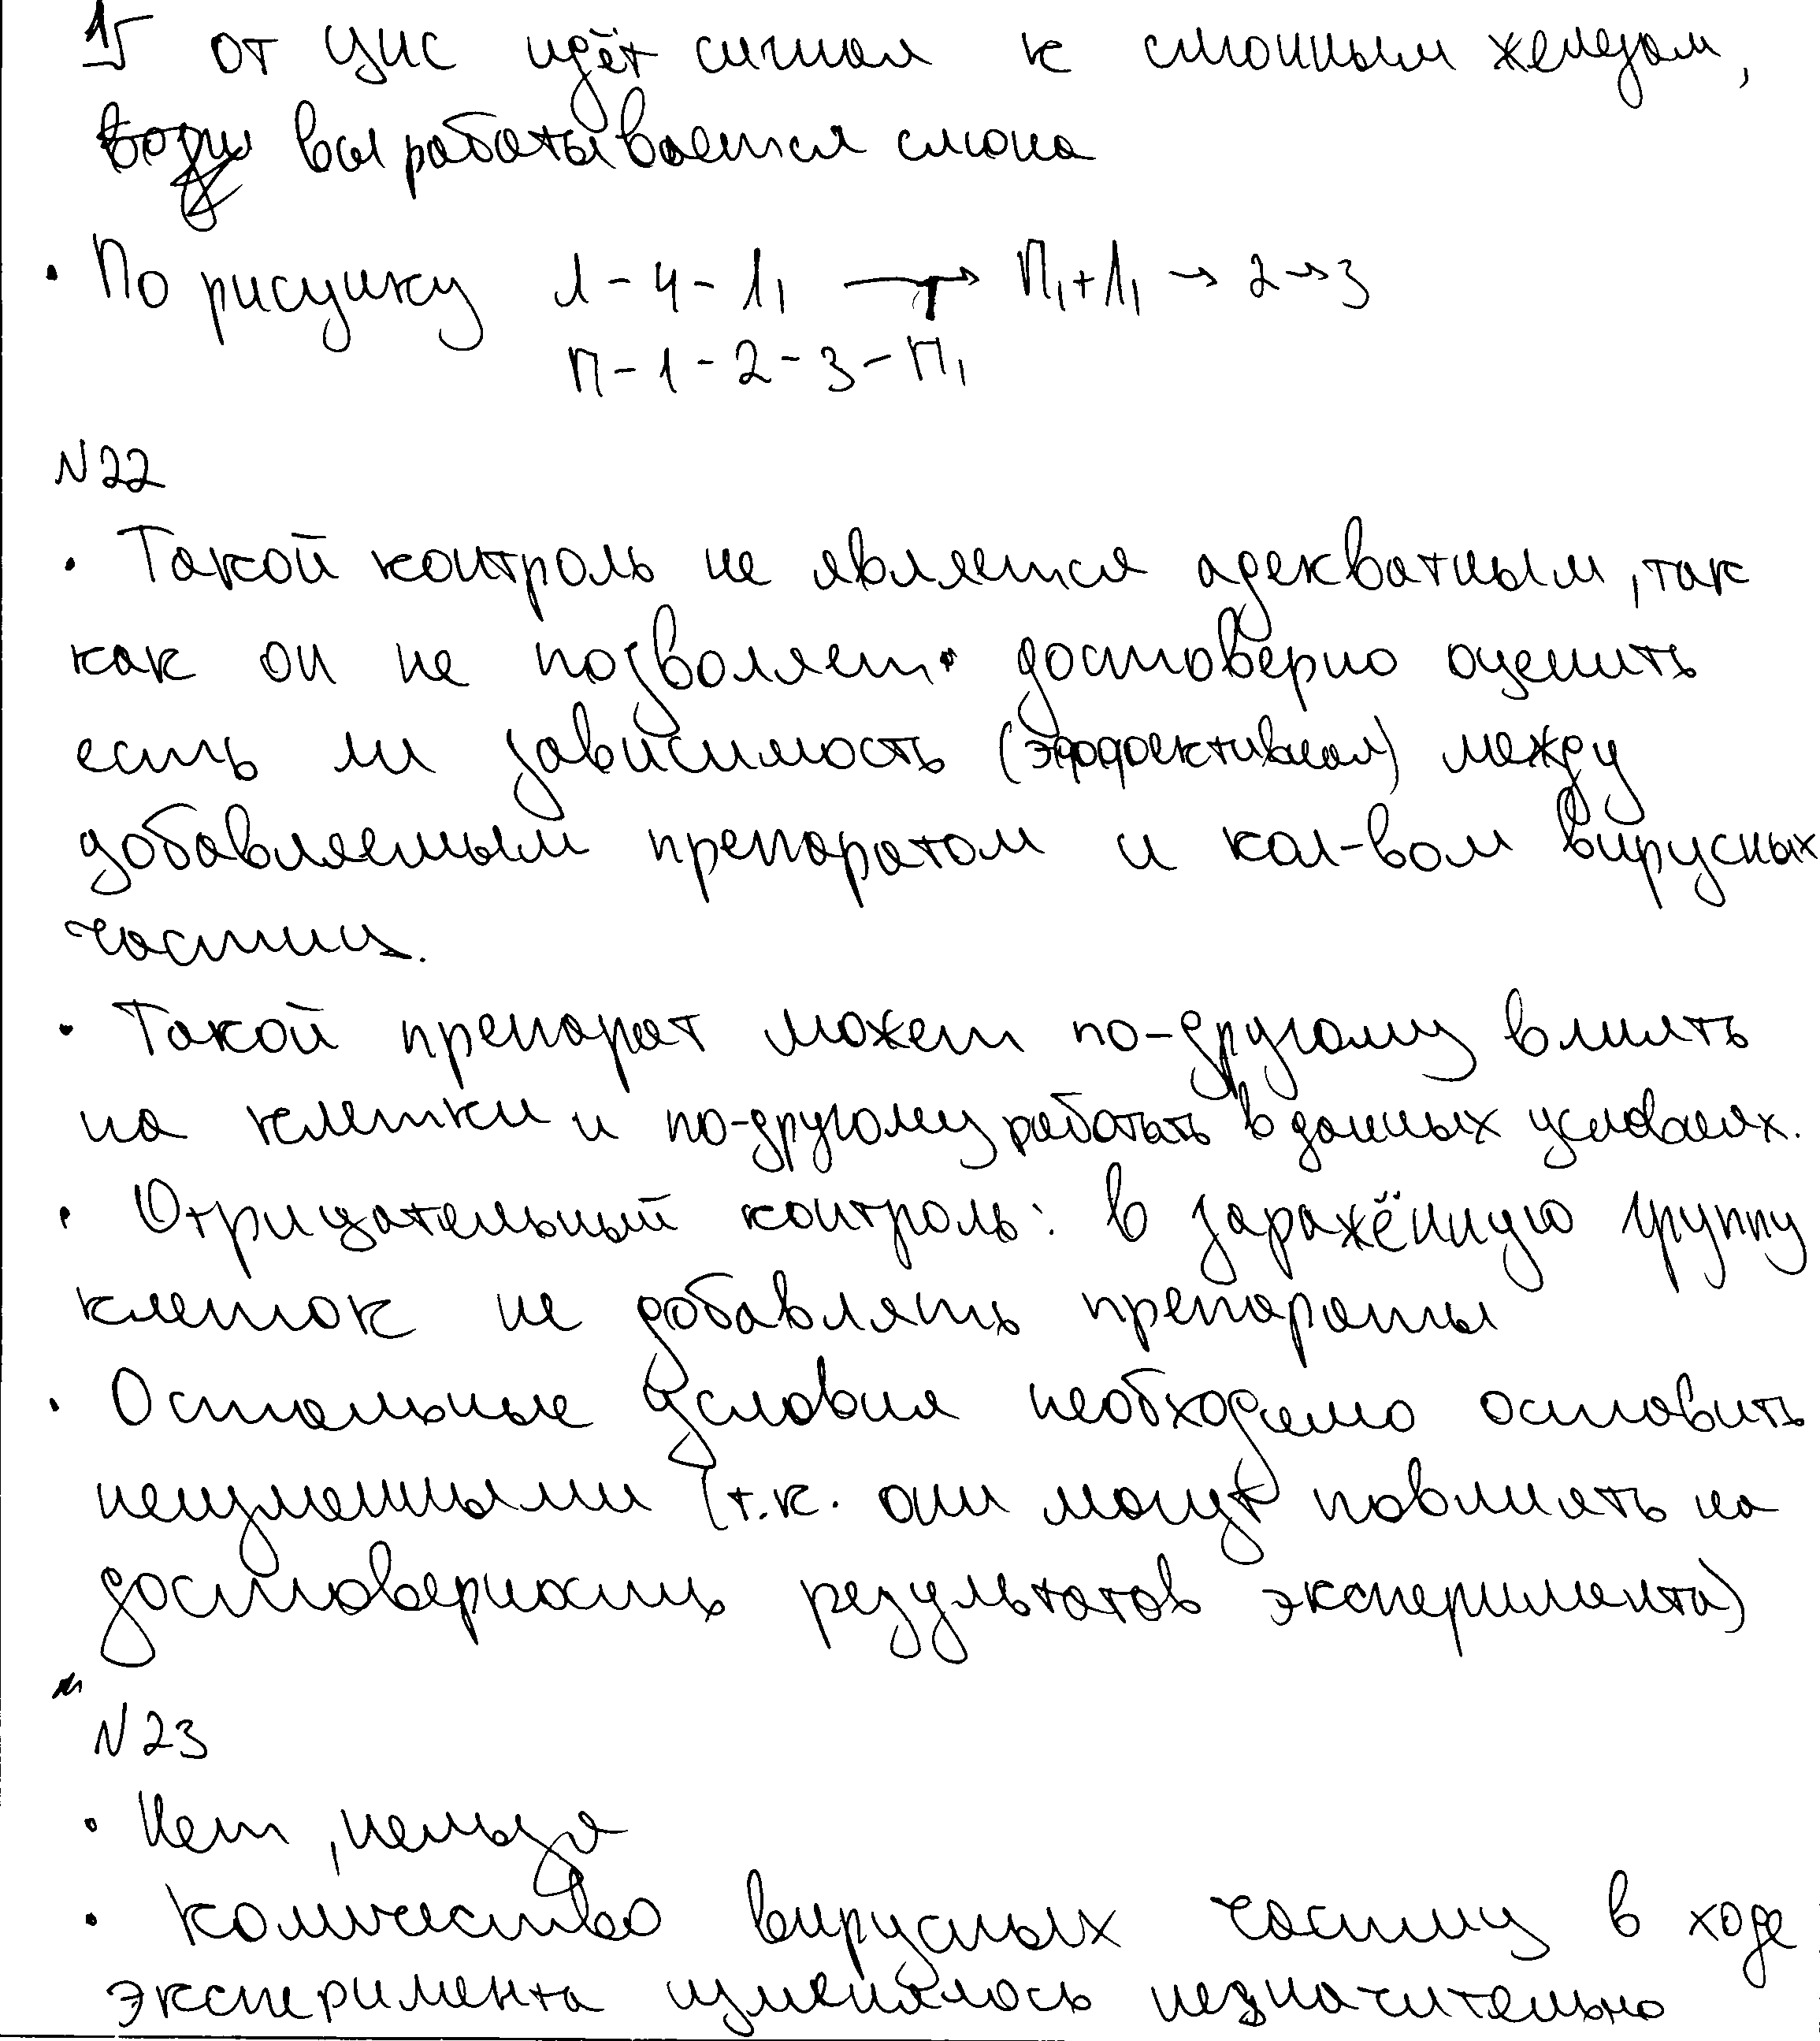 15 от ЦНС идёт сигнал к слюнным железам,
вырабатывается слюна
• По рисунку 1 - 4 - Л₁ → П₁+Л₁ → 2 → 3
П - 1 - 2 - 3 - П₁
N22
• Такой контроль не является адекватным, так
как он не позволяет достоверно оценить
есть ли зависимость (эффективная) между
добавляемым препаратом и кол-вом вирусных
частиц.
• Такой препарат может по-другому влиять
на клетки и по-другому работать в данных условиях.
• Отрицательный контроль: в заражённую группу
клеток не добавлять препараты
• Остальные условия необходимо оставить
неизменными (т.к. они могут повлиять на
достоверность результатов эксперимента)
N23
• Нет, нельзя
• Количество вирусных частиц в ходе
эксперимента изменялось незначительно